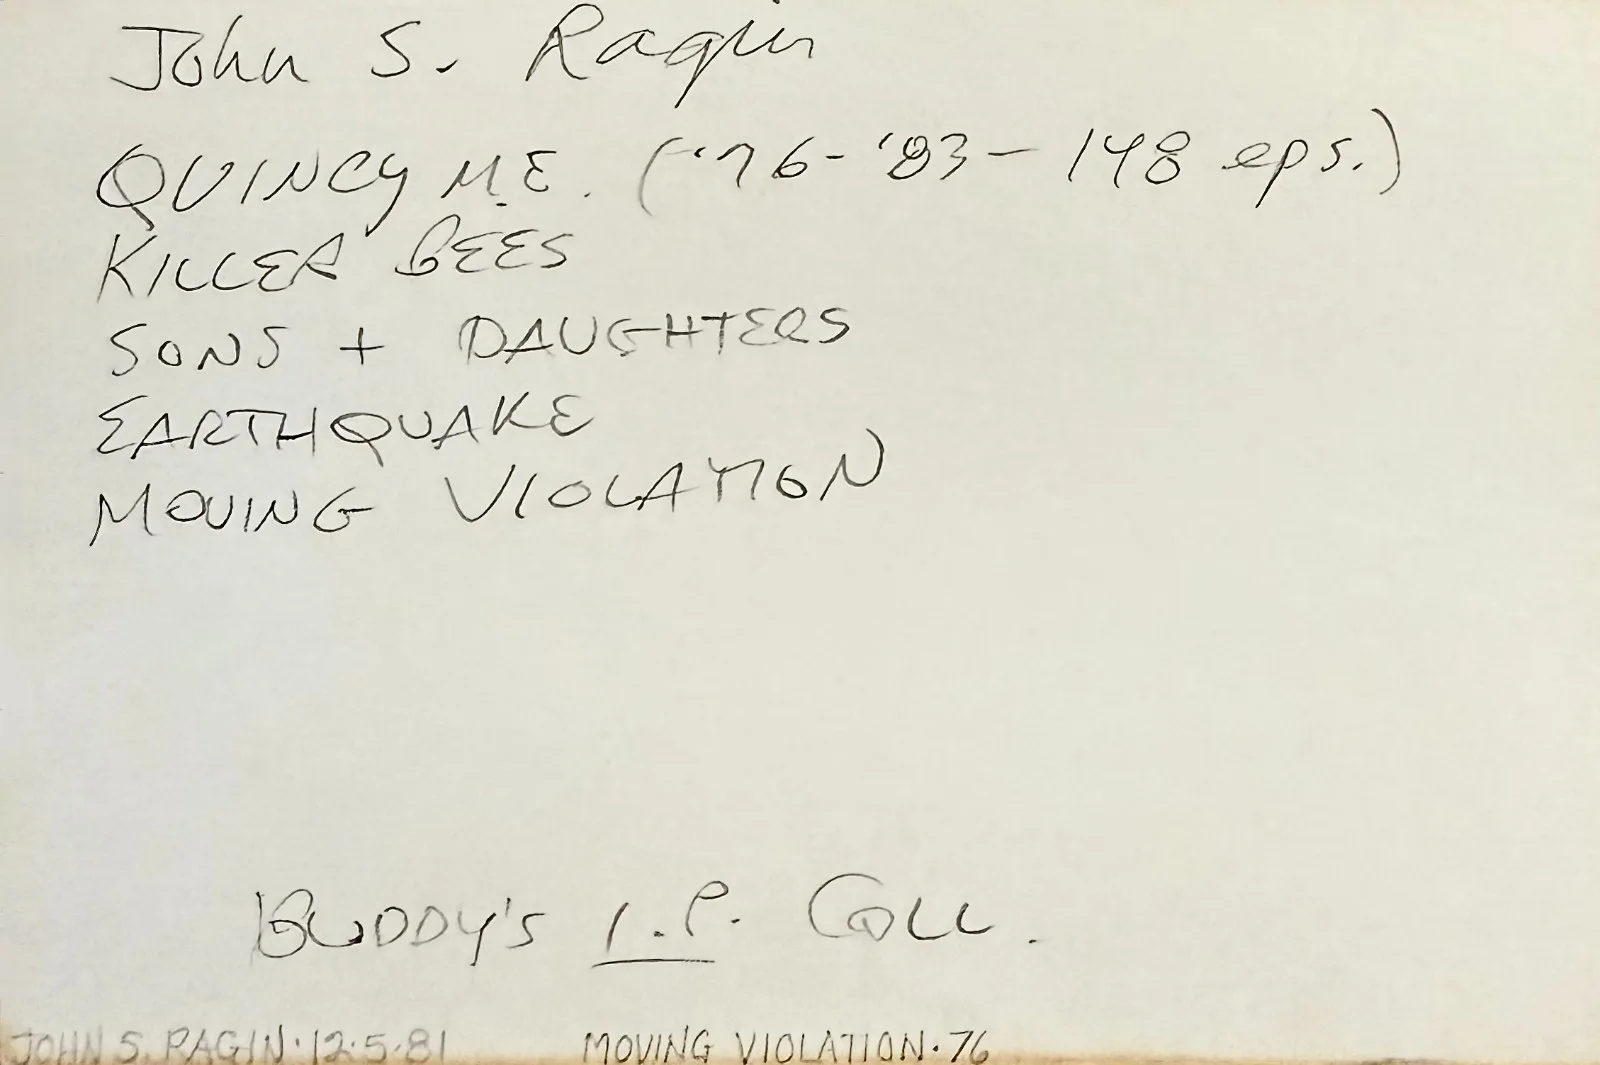 John S. Ragin
QUINCY M.E. ('76-'83 - 148 eps.)
KILLER BEES
SONS + DAUGHTERS
EARTHQUAKE
MOVING VIOLATION
BUDDY'S I.P. COLL.
JOHN S. RAGIN·12·5·81 MOVING VIOLATION·76